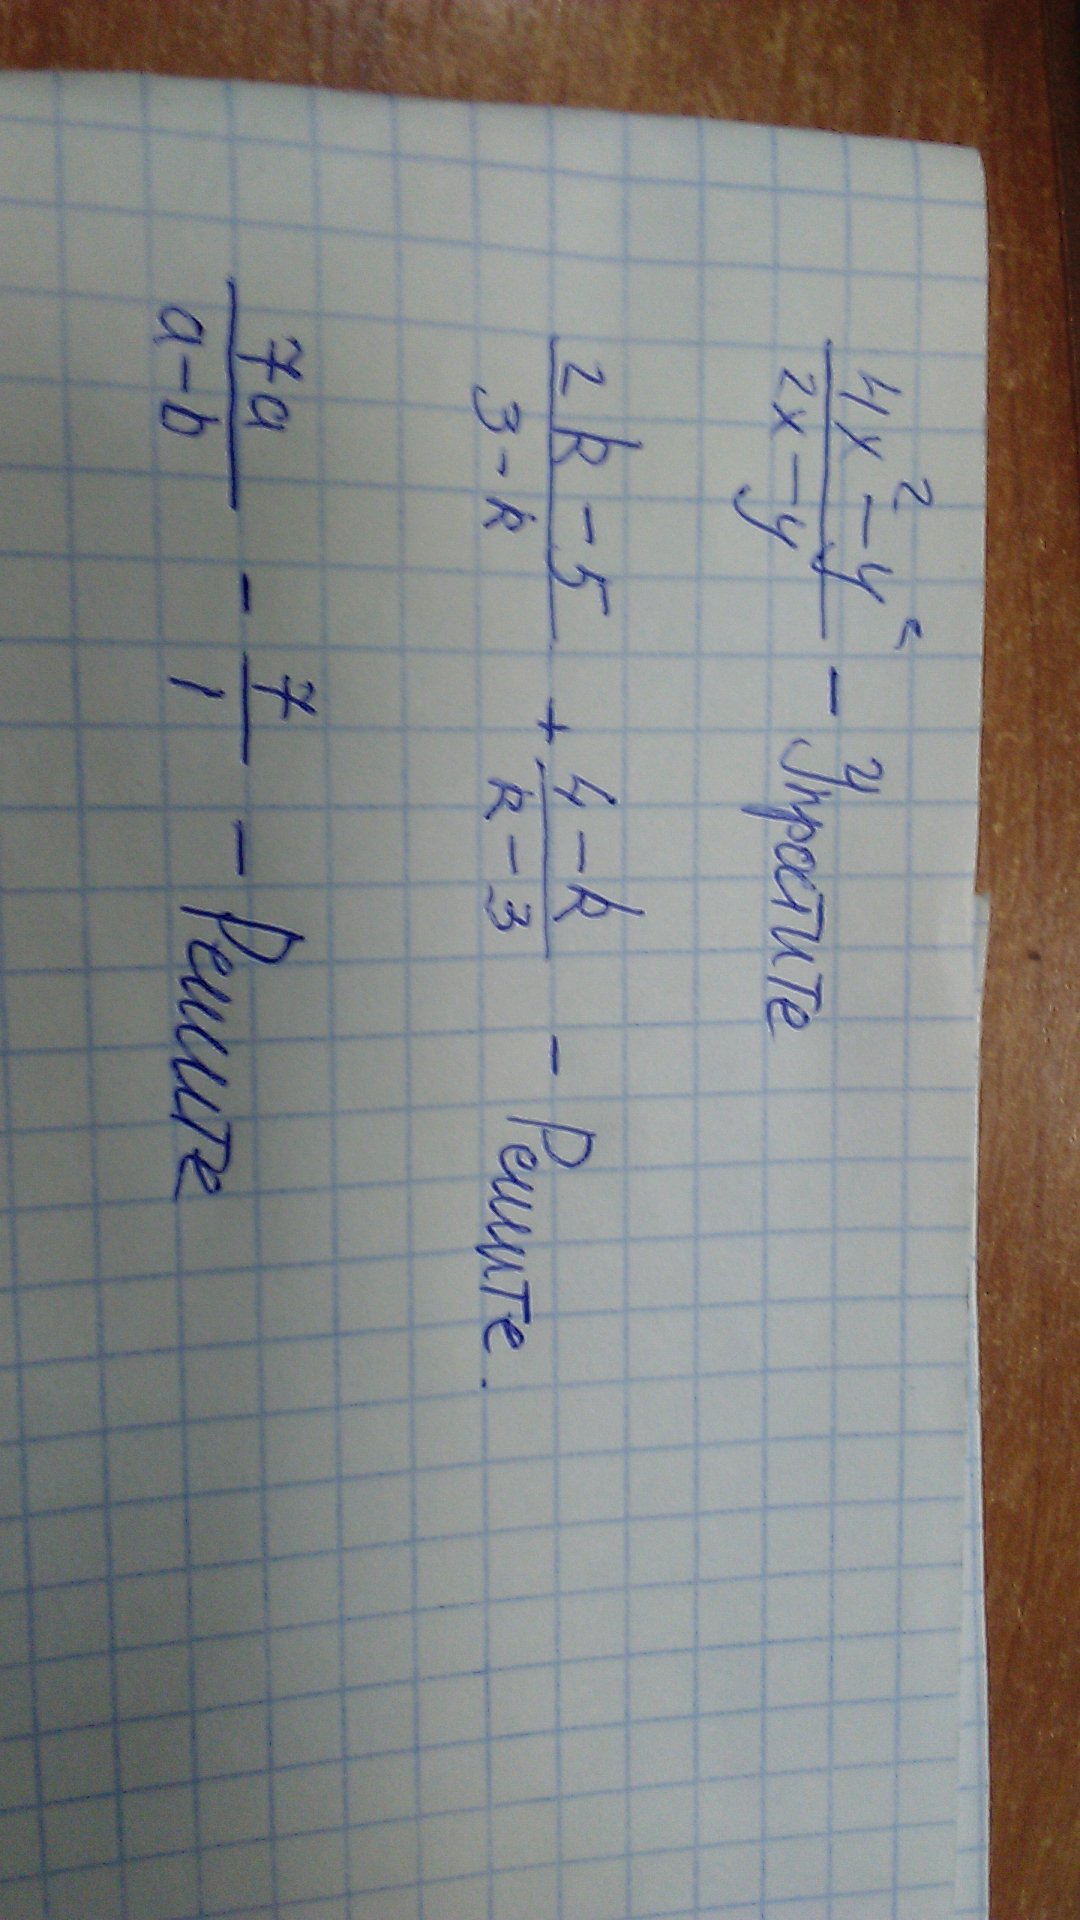 4x² - y² / 2x - y - Упростите
2k - 5 / 3 - k + 4 - k / k - 3 - Решите.
7a / a - b - 7 / 1 - Решите